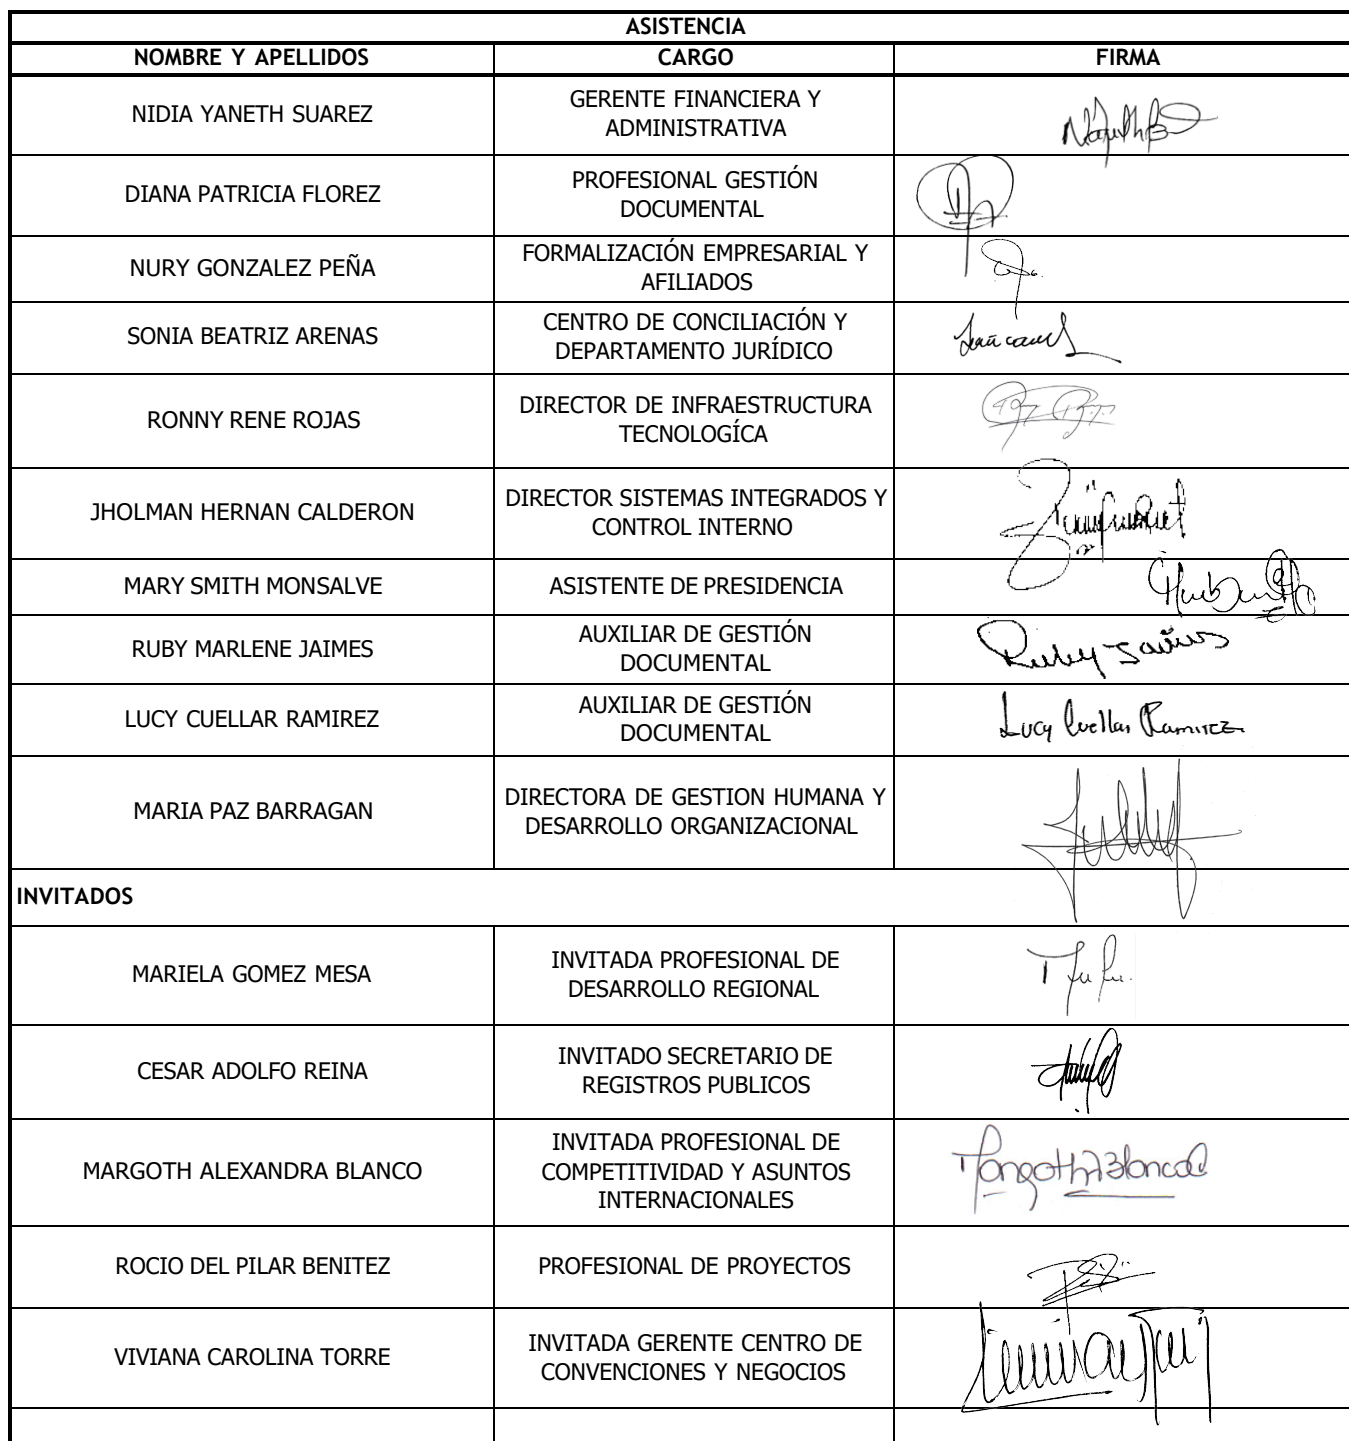 ASISTENCIA
NOMBRE Y APELLIDOS CARGO FIRMA
NIDIA YANETH SUAREZ
GERENTE FINANCIERA Y
ADMINISTRATIVA
DIANA PATRICIA FLOREZ
PROFESIONAL GESTIÓN
DOCUMENTAL
NURY GONZALEZ PEÑA
FORMALIZACIÓN EMPRESARIAL Y
AFILIADOS
SONIA BEATRIZ ARENAS
CENTRO DE CONCILIACIÓN Y
DEPARTAMENTO JURÍDICO
RONNY RENE ROJAS
DIRECTOR DE INFRAESTRUCTURA
TECNOLOGÍCA
JHOLMAN HERNAN CALDERON
DIRECTOR SISTEMAS INTEGRADOS Y
CONTROL INTERNO
MARY SMITH MONSALVE
ASISTENTE DE PRESIDENCIA
RUBY MARLENE JAIMES
AUXILIAR DE GESTIÓN
DOCUMENTAL
Ruby Jaimes
LUCY CUELLAR RAMIREZ
AUXILIAR DE GESTIÓN
DOCUMENTAL
Lucy Cuellar Ramirez
MARIA PAZ BARRAGAN
DIRECTORA DE GESTION HUMANA Y
DESARROLLO ORGANIZACIONAL
INVITADOS
MARIELA GOMEZ MESA
INVITADA PROFESIONAL DE
DESARROLLO REGIONAL
CESAR ADOLFO REINA
INVITADO SECRETARIO DE
REGISTROS PUBLICOS
MARGOTH ALEXANDRA BLANCO
INVITADA PROFESIONAL DE
COMPETITIVIDAD Y ASUNTOS
INTERNACIONALES
Margoth Blanco
ROCIO DEL PILAR BENITEZ
PROFESIONAL DE PROYECTOS
VIVIANA CAROLINA TORRE
INVITADA GERENTE CENTRO DE
CONVENCIONES Y NEGOCIOS